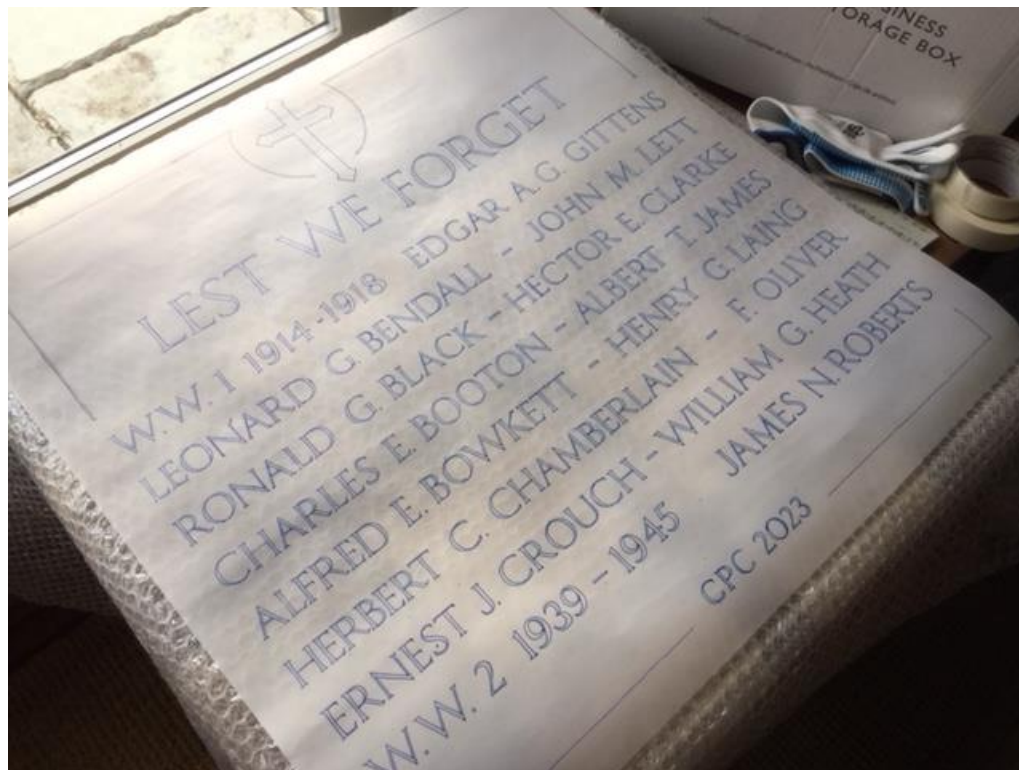 LEST WE FORGET
W.W. 1 1914-1918 EDGAR A.G. GITTENS
LEONARD G. BENDALL - JOHN M. LETT
RONALD G. BLACK - HECTOR E. CLARKE
CHARLES E. BOOTON - ALBERT T. JAMES
ALFRED E. BOWKETT - HENRY G. LAING
HERBERT C. CHAMBERLAIN - F. OLIVER
ERNEST J. CROUCH - WILLIAM G. HEATH
W.W. 2 1939 - 1945 JAMES N. ROBERTS
CPC 2023
STORAGE BOX